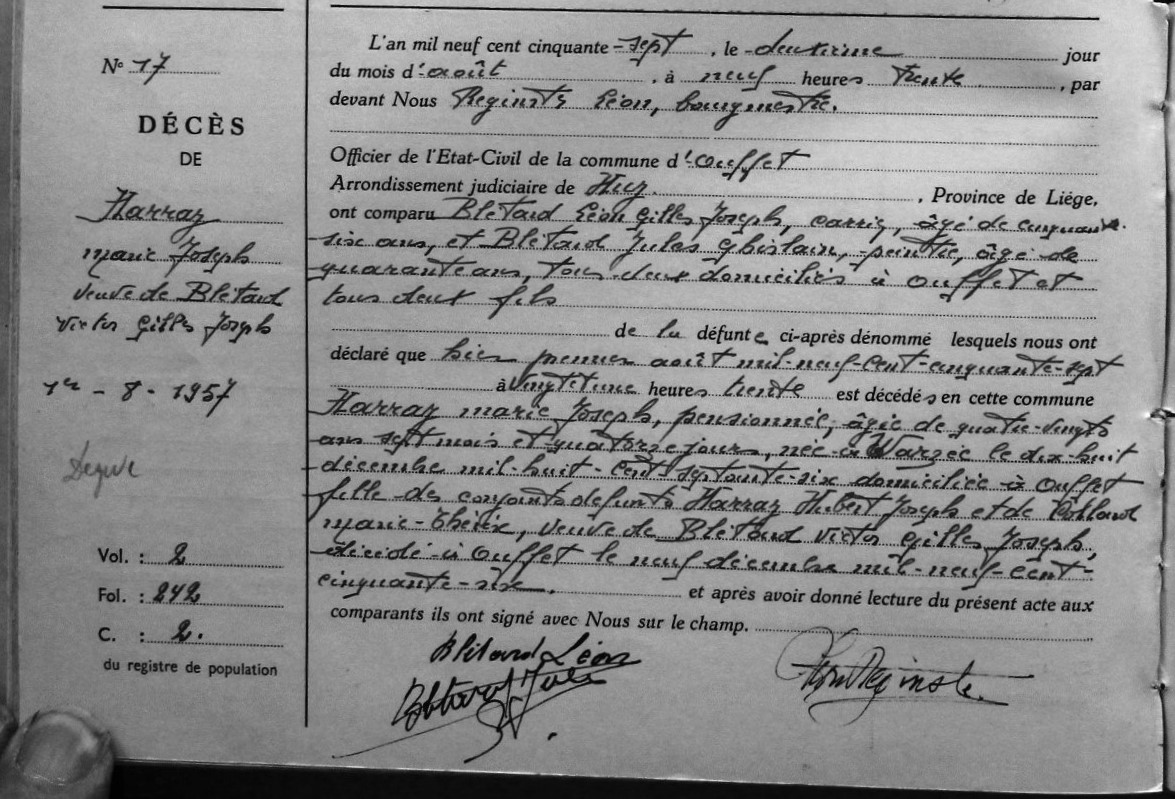 N° 17
DÉCÈS
DE
Harray
Marie Joseph
veuve de Blétard
Victor Gilles Joseph
1er - 8 - 1957
Vol. : 2
Fol. : 242
C. : 2.
du registre de population
L'an mil neuf cent cinquante-sept, le deuxième jour
du mois d'août, à neuf heures trente, par
devant Nous Reginster Léon, bourgmestre.
Officier de l'Etat-Civil de la commune d'Ouffet
Arrondissement judiciaire de Huy., Province de Liége,
ont comparu Blétard Léon Gilles Joseph, carrier, âgé de cinquante-
six ans, et Blétard Jules Ghislain, peintre, âgé de
quarante ans, tous deux domiciliés à Ouffet et
tous deux fils
de la défunte, ci-après dénommé lesquels nous ont
déclaré que hier premier août mil-neuf-cent-cinquante-sept
à vingt et une heures trente est décédés en cette commune
Harray Marie Joseph, pensionnée, âgée de quatre-vingts
ans sept mois et quatorze jours, née à Warzée le dix-huit
décembre mil-huit-cent septante-six domiciliée à Ouffet
fille des conjoints défunts Harray Hubert Joseph et de Collard
Marie-Thérèse, veuve de Blétard Victor Gilles Joseph,
décédé à Ouffet le neuf décembre mil-neuf-cent-
cinquante-six. et après avoir donné lecture du présent acte aux
comparants ils ont signé avec Nous sur le champ.
Blétard Léon
Blétard Jules
Léon Reginster